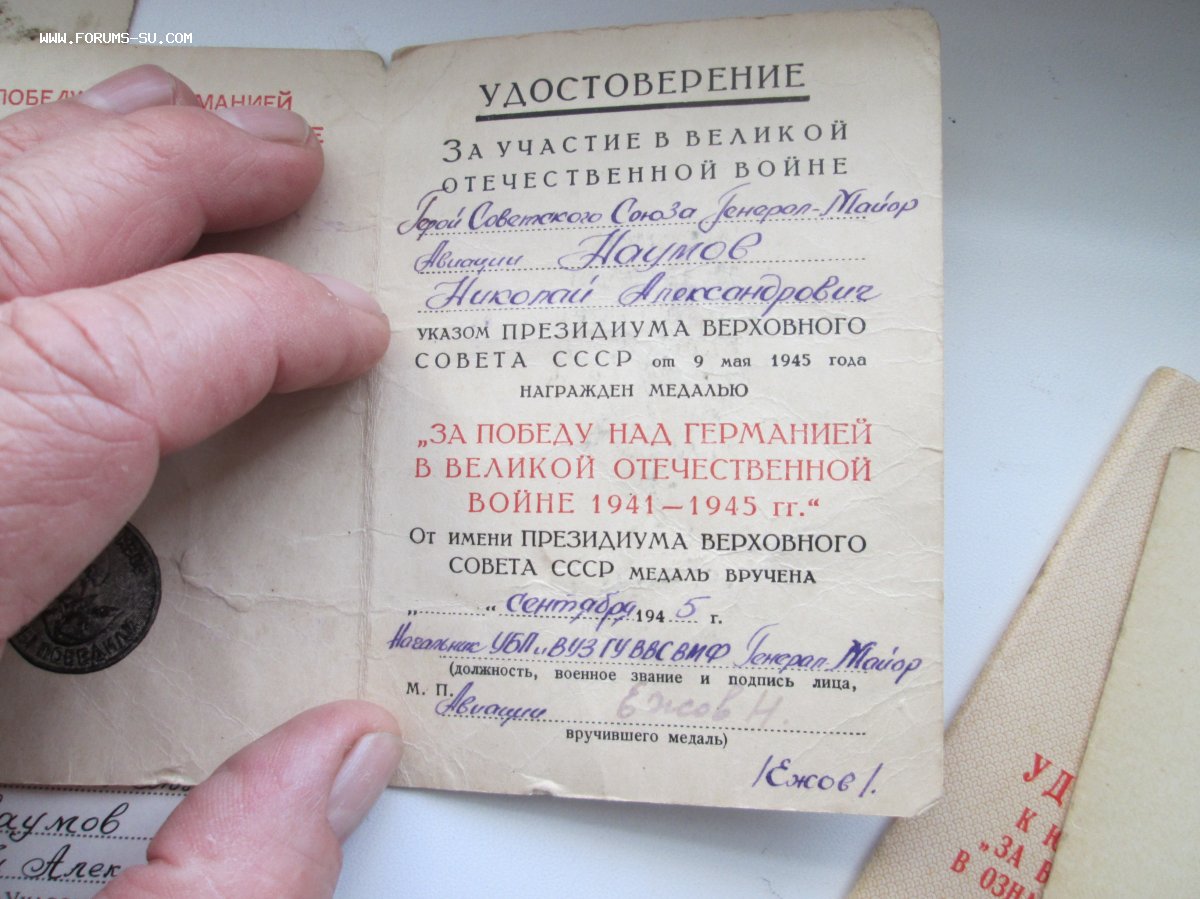 WWW.FORUMS-SU.COM
УДОСТОВЕРЕНИЕ
ЗА УЧАСТИЕ В ВЕЛИКОЙ
ОТЕЧЕСТВЕННОЙ ВОЙНЕ
Герой Советского Союза Генерал-Майор
Авиации Наумов
Николай Александрович
УКАЗОМ ПРЕЗИДИУМА ВЕРХОВНОГО
СОВЕТА СССР от 9 мая 1945 года
НАГРАЖДЕН МЕДАЛЬЮ
„ЗА ПОБЕДУ НАД ГЕРМАНИЕЙ
В ВЕЛИКОЙ ОТЕЧЕСТВЕННОЙ
ВОЙНЕ 1941—1945 гг.“
ОТ ИМЕНИ ПРЕЗИДИУМА ВЕРХОВНОГО
СОВЕТА СССР МЕДАЛЬ ВРУЧЕНА
„ “ сентября 1945 г.
Начальник УБП и ВУЗ ГУ ВВС ВМФ Генерал-Майор
(должность, военное звание и подпись лица,
М. П.
Авиации Ежов Н.
вручившего медаль)
/Ежов/.
ПОБЕДИЛИ
аумов
Алек
УД
К Ю
„ЗА В
В ОЗНА